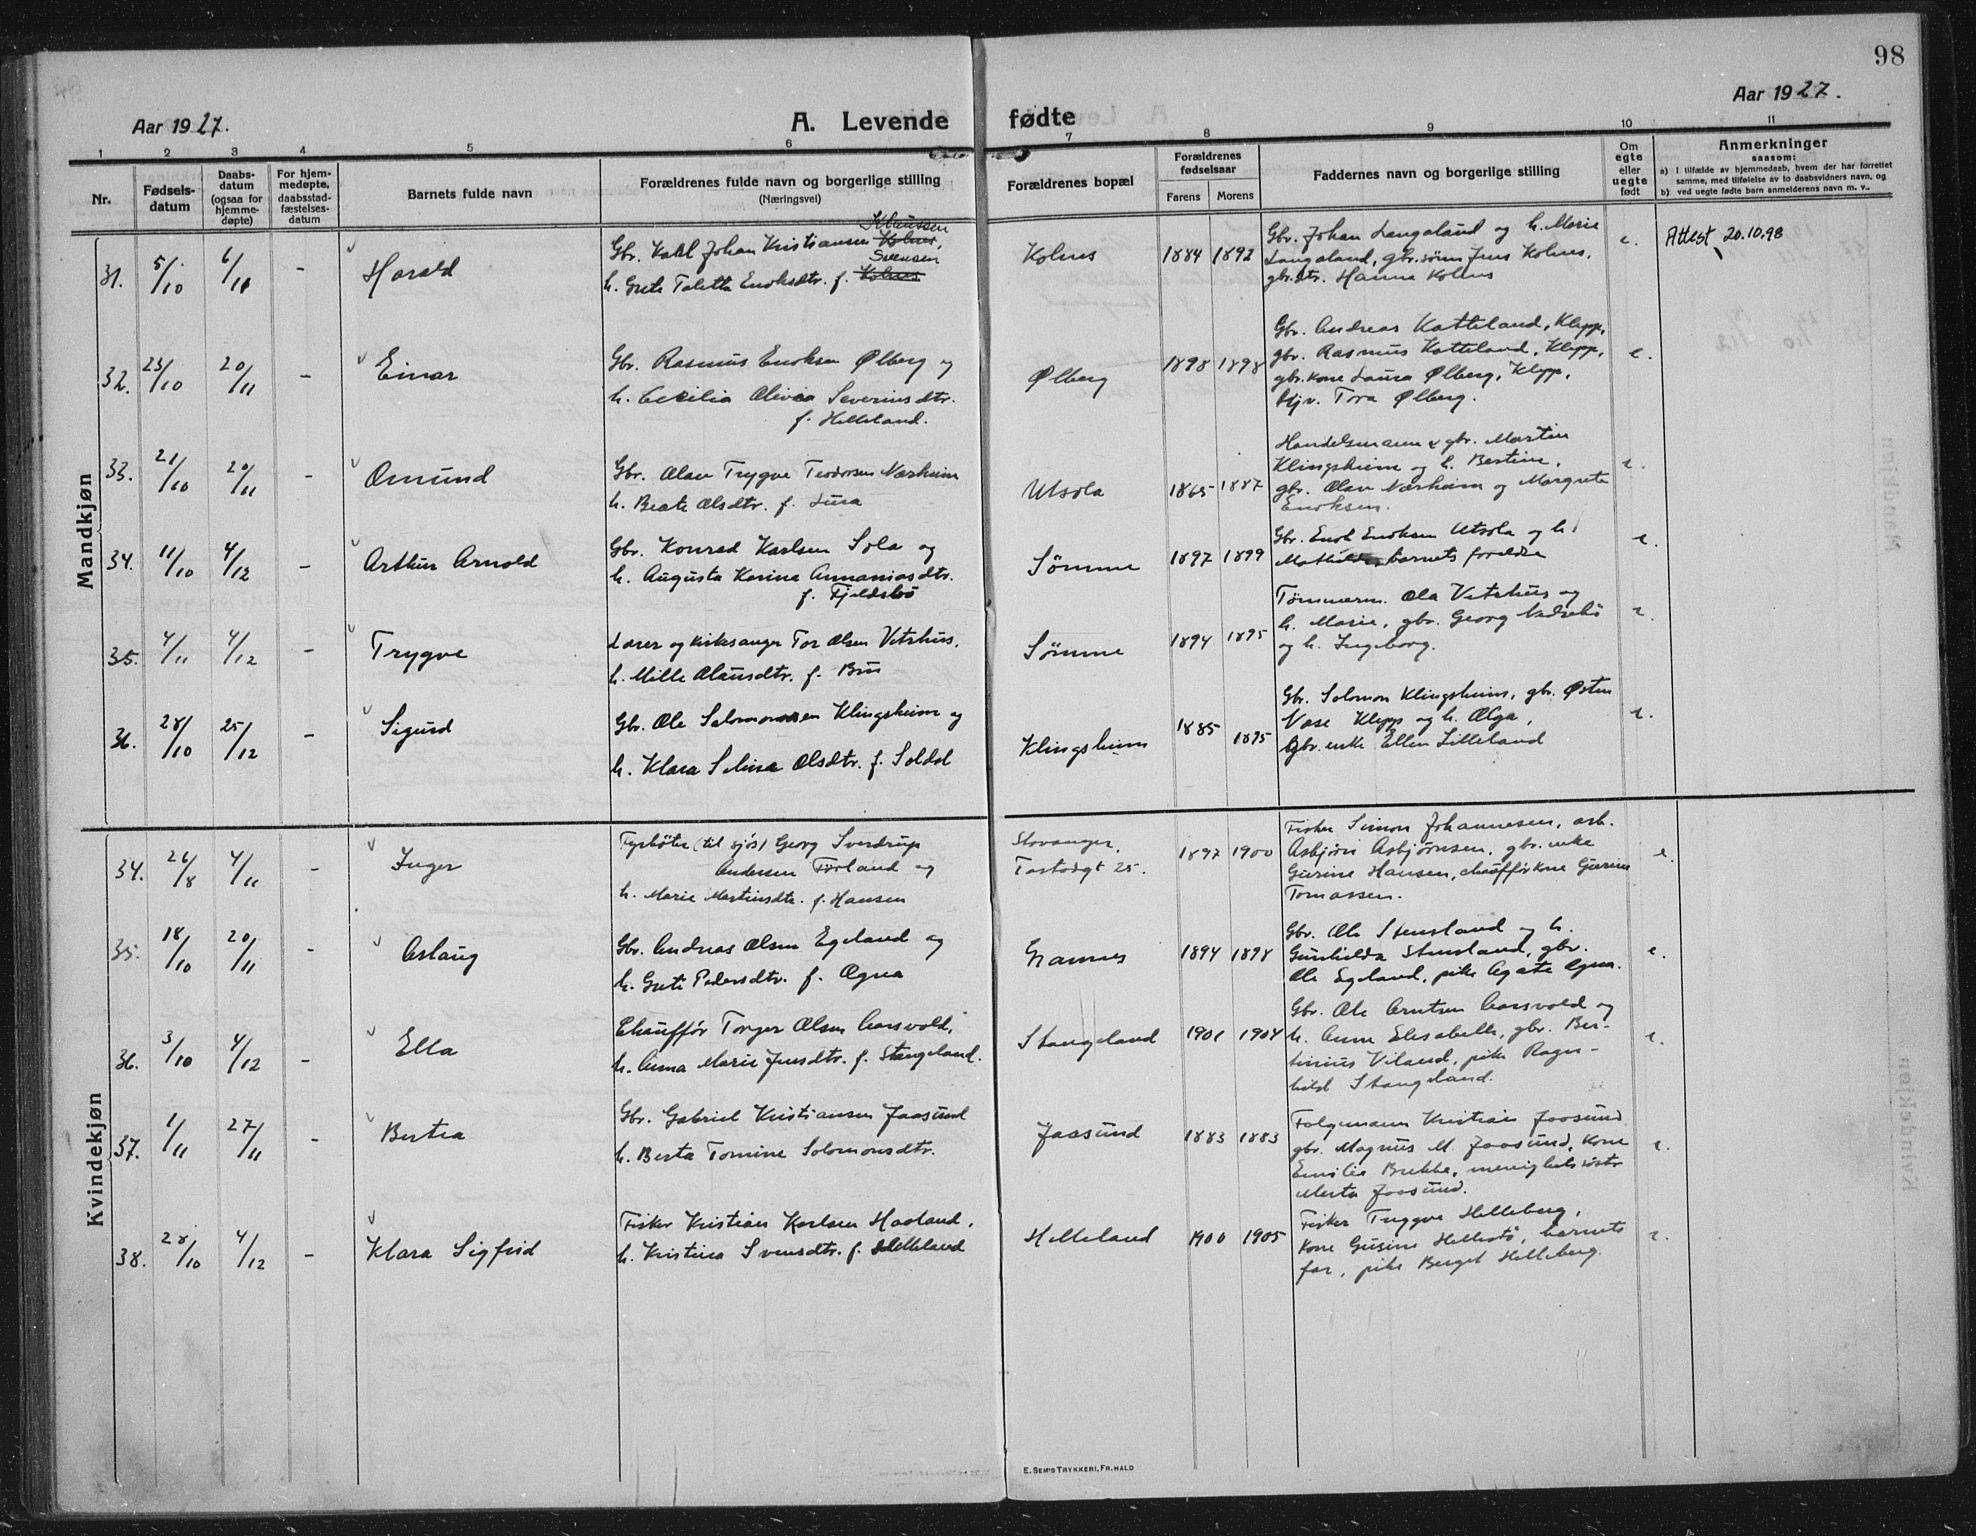 98
Aar 1927.
A. Levende fødte
Aar 1927.
1 2 3 4 5 6 7 8 9 10 11
Nr.
Fødsels-
datum
Daabs-
datum
(ogsaa for
hjemme-
døpte)
For hjem-
medøpte,
daabsstad-
fæstelses-
datum
Barnets fulde navn
Forældrenes fulde navn og borgerlige stilling
(Næringsvei)
Forældrenes bopæl
Forældrenes
fødselsaar
Farens Morens
Faddernes navn og borgerlige stilling
Om
egte
eller
uegte
født
Anmerkninger
saasom:
a) I tilfælde av hjemmedaab, hvem der har forrettet
samme, med tilføielse av to daabsvidners navn, og
b) ved uegte fødte barn anmelderens navn m. v..
Mandkjøn
31. 5/10 6/11 - Harald
Gbr. Karl Johan Kristiansen Klaussen Kolnes,
h. Grete Taletta Enoksdtr. f. Svensen Kolnes
Kolnes 1884 1892
Gbr. Johan Langaland og h. Marie
Langaland, gbr.søn Jens Kolnes,
gbr.dtr. Hanna Kolnes
e. Attest 20.10.98
32. 23/10 20/11 - Einar
Gbr. Rasmus Enoksen Ølberg og
h. Cecilia Olivia Severinsdtr.
f. Helleland.
Ølberg 1898 1898
Gbr. Andreas Katteland, Klepp,
gbr. Rasmus Katteland, Klepp,
gbr.kone Laura Ølberg, Klepp,
Tora Ølberg.
e.
33. 21/10 20/11 - Omund
Gbr. Olav Trygve Teodorsen Nærheim
h. Beate Olsdtr. f. Lura
Utsola 1865 1887
Handelsmann & gbr. Martin
Klingsheim og h. Bertine,
gbr. Olav Nærheim og Margrete
Enoksen.
e.
34. 11/10 4/12 - Arthur Arnold
Gbr. Konrad Karlsen Sola og
h. Augusta Karina Annaniasdtr.
f. Fjeldsbø
Sømme 1897 1899
Gbr. Enok Enoksen Utsola og h.
Mathilde, barnets foreldre
e.
35. 4/11 4/12 Trygve
Lærer og kirkesanger Tor Olsen Vitshus,
h. Mille Olausdtr. f. Bru
Sømme 1894 1895
Tømmerm. Ola Vitshus og
h. Marie, gbr. Georg Nedrebø
og h. Ingeborg.
e.
36. 28/10 25/12 - Sigurd
Gbr. Ole Salomonsen Klingsheim og
h. Klara Selma Olsdtr. f. Soldal
Klingsheim 1885 1895
Gbr. Solomon Klingsheim, gbr. Østen
Vase Klepp og h. Olga,
Gbr.enke Ellen Lilleland
e.
Kvindekjøn
34. 26/8 4/11 - Inger
Fyrbøter (til sjøs) Georg Sverdrup
Andersen Førland og
h. Marie Martinsdtr. f. Hansen
Stavanger,
Tastadgt 25.
1897 1900
Fisker Simon Johannesen, arb.
Asbjørn Asbjørnsen, gbr. enke
Gurine Hansen, chaufførkone Gurine
Tomassen.
e.
35. 18/10 20/11 - Aslaug
Gbr. Andreas Olsen Egeland og
h. Grete Pedersdtr. f. Ogna
1894 1898
Gbr. Ole Stensland og h.
Gunhilda Stensland, gbr.
Ole Egeland, pike Agate Ogna.
e.
36. 3/10 4/12 - Ella
Chauffør Torger Olsen Aarsvold,
h. Anna Marie Jensdtr. f. Stangeland.
Stangeland 1901 1904
Gbr. Ole Arntsen Aarsvold og
h. Anne Elisabeth, gbr. Ber-
tinius Viland, pike Ragn-
hild Stangeland.
e.
37. 1/11 27/11 - Bertea
Gbr. Gabriel Kristiansen Jaasund
h. Berta Tomine Solomonsdtr.
Jaasund 1883 1883
Kristian Jaasund
gbr. Magnus M. Jaasund, kone
Emilie Brekke, menighetssøster
Marta Jaasund.
e.
38. 28/10 4/12 - Klara Sigfrid
Fisker Kristian Karlsen Haaland,
h. Kristina Svensdtr. f. Helleland
Helleland 1900 1905
Fisker Tryggve Helleberg,
kone Gusine Hellestø, barnets
far, pike Berget Helleberg.
e.
E. SEM'S TRYKKERI, FR.HALD